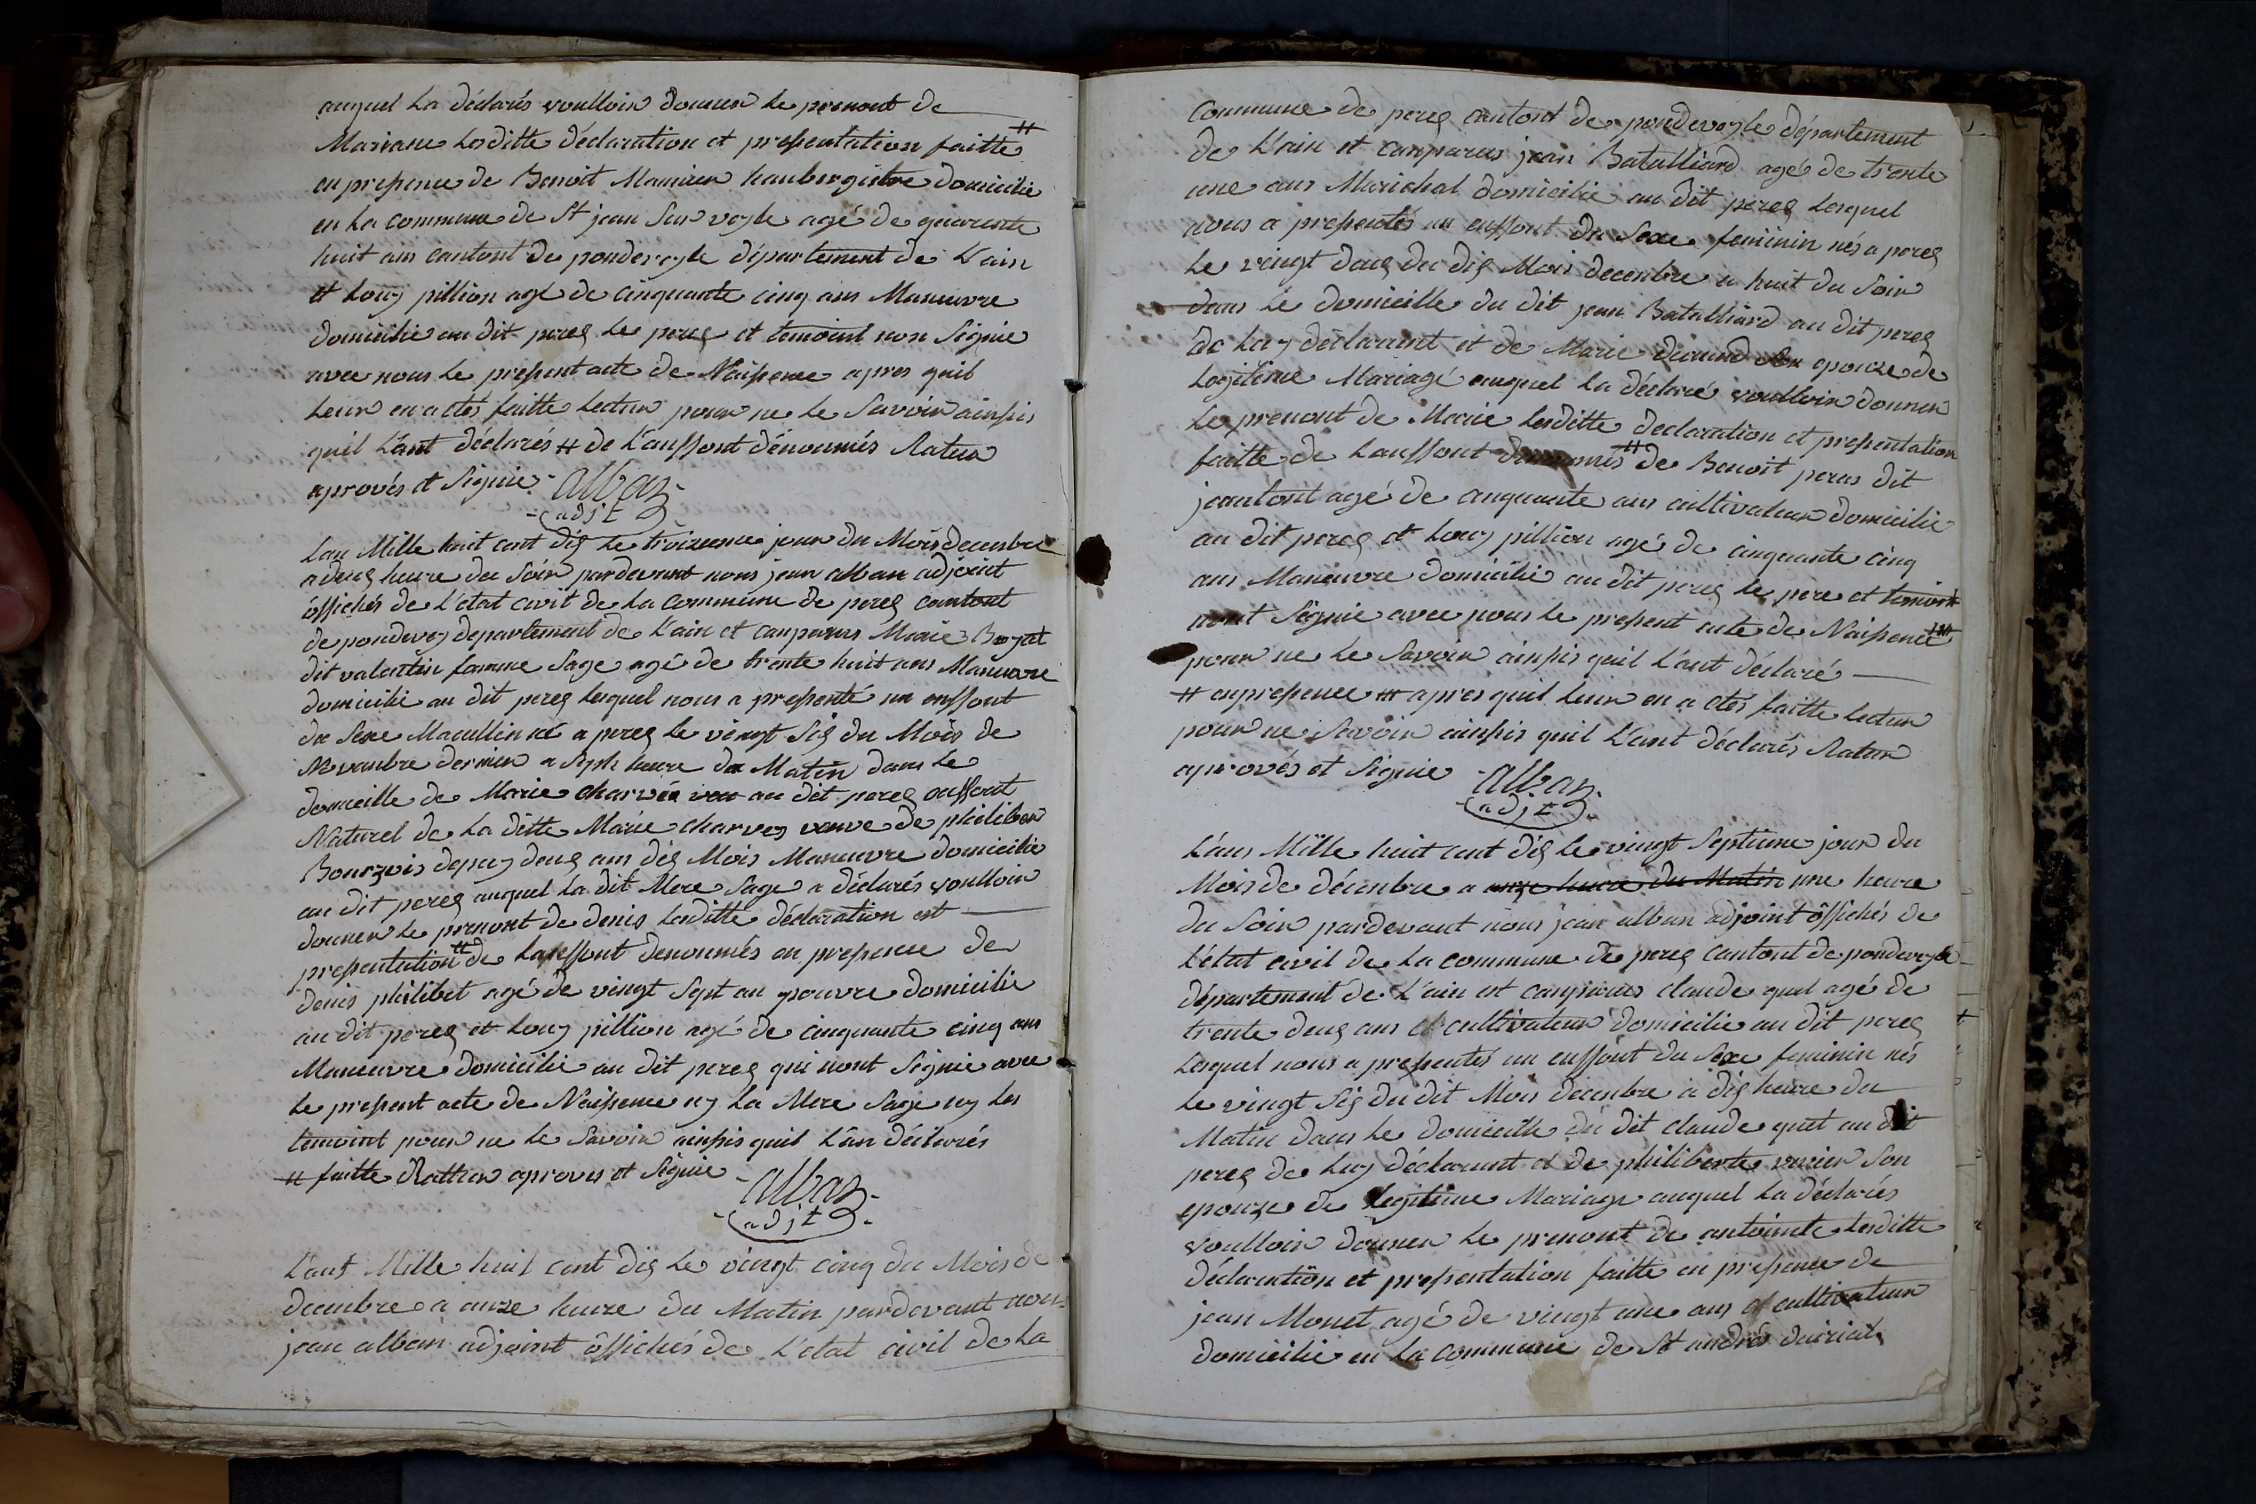 auquel la déclarés voulloir donner le prenont de
Mariane lesditte déclaration et presentation faitte #
en presence de Benoit Mamirer haubergistre domicilie
en la commune de St jean sur veyle agé de quarente
huit ans cantont de pondeveyle département de L'ain
et Louy pillion agé de cinquante cinq ans Manuvre
domicilie au dit pereg le pere et temoint non signie
avec nous le present acte de Naissence apres quil
leur en a etés faitte lectur pour ne le savoir ainssis
quil L'ant déclarés # de L'anffont dénoumés Ratur
aprovés et signie alban
adjt
Lan Mille huit cent dig le troizieme jour du Mois decenbre
a deug heure du soir pardevant nous jean alban adjoint
öffichés de L'etat civil de la commune de pereg cantont
de pondevey departement de L'ain et conparus Marie Boyat
dit valantin famme sage agé de trente huit ans Manuvre
domicilie au dit pereg lequel nous a pressenté un enffont
du sexe Maculin né a pereg le vingt sig du Mois de
Novanbre dernier a seph heure du Matin dans le
domicille de Marie charvée veu au dit pereg anffont
Naturel de la ditte Marie charvey veuve de philiber
Bourzois depuy deug ans dig Mois Manuvre domicilie
au dit pereg auquel la dit Mere sage a déclarés voulloir
donner le prenont de denis lesditte déclaration est
presentation # de Lanffont denonmés en presence de
denis philibet agé de vingt sept an pouvre domicilie
au dit pereg et Louy pillion agé de cinquante cinq ans
Manuvre domicilie au dit pereg qui nont signie avec
le present acte de Naissence ny la Mere sage ny les
temoint pour ne le savoir ainssis quil L'an déclarés
# faitte Rattur aproves et signie alban
adjt
L'ant Mille huit cent dig le vingt cinq du Mois de
decenbre a onze heure du Matin pardevant nous
jean alban adjoint öffichés de L'etat civil de la
commune de pereg cantont de pondeveyle département
de L'ain et conparus jean Batalliard agé de trente
une ans Marichal domicilie au dit pereg lequel
nous a presentés un enffont du sexe feminin nés a pereg
le vingt deug du dig Mois decenbre a huit du soir
dans le domicille du dit jean Batalliard au dit pereg
de Luy déclarant et de Marie epouze de
Legitime Mariagé auquel la déclaré voulloir donner
le prenont de Marie lesditte declaration et presentation
faitte de Lanffont # de Benoit perus dit
jeantont agé de cinquante ans cultivateur domicilie
au dit pereg et Louy pillion agé de cinquante cinq
ans Manuvre domicilie au dit pereg le pere et temoint
nont signie avec nous le present acte de Naissence ##
pour ne le savoir ainssis quil L'ant déclaré
# en presence ## apres quil leur en a etés faitte lectur
pour ne savoir ainssis quil L'ant déclarés Ratur
aprovés et signie alban
adjt
L'ans Mille huit cent dig le vingt septieme jour du
Mois de décenbre a onze heure du Matin une heure
du soir pardevant nous jean alban adjoint öffichés de
L'état civil de la commune de pereg cantont de pondeveyle
département de L'ain et conparus claude quet agé de
trente deug ans et cultivateur domicilie au dit pereg
lequel nous a presentés un enffont du sexe feminin nés
le vingt sig du dit Mois decenbre a dig heure du
Matin dans le domicille du dit claude quet au dit
pereg de Luy déclarant et de philiberte son
epouze de legitime Mariage auquel la déclarés
voulloir donner le prenont de antoinete lesditte
déclaration et presentation faitte en presence de
jean Monet agé de vingt une ans et cultivateur
domicilie en la commune de St andré